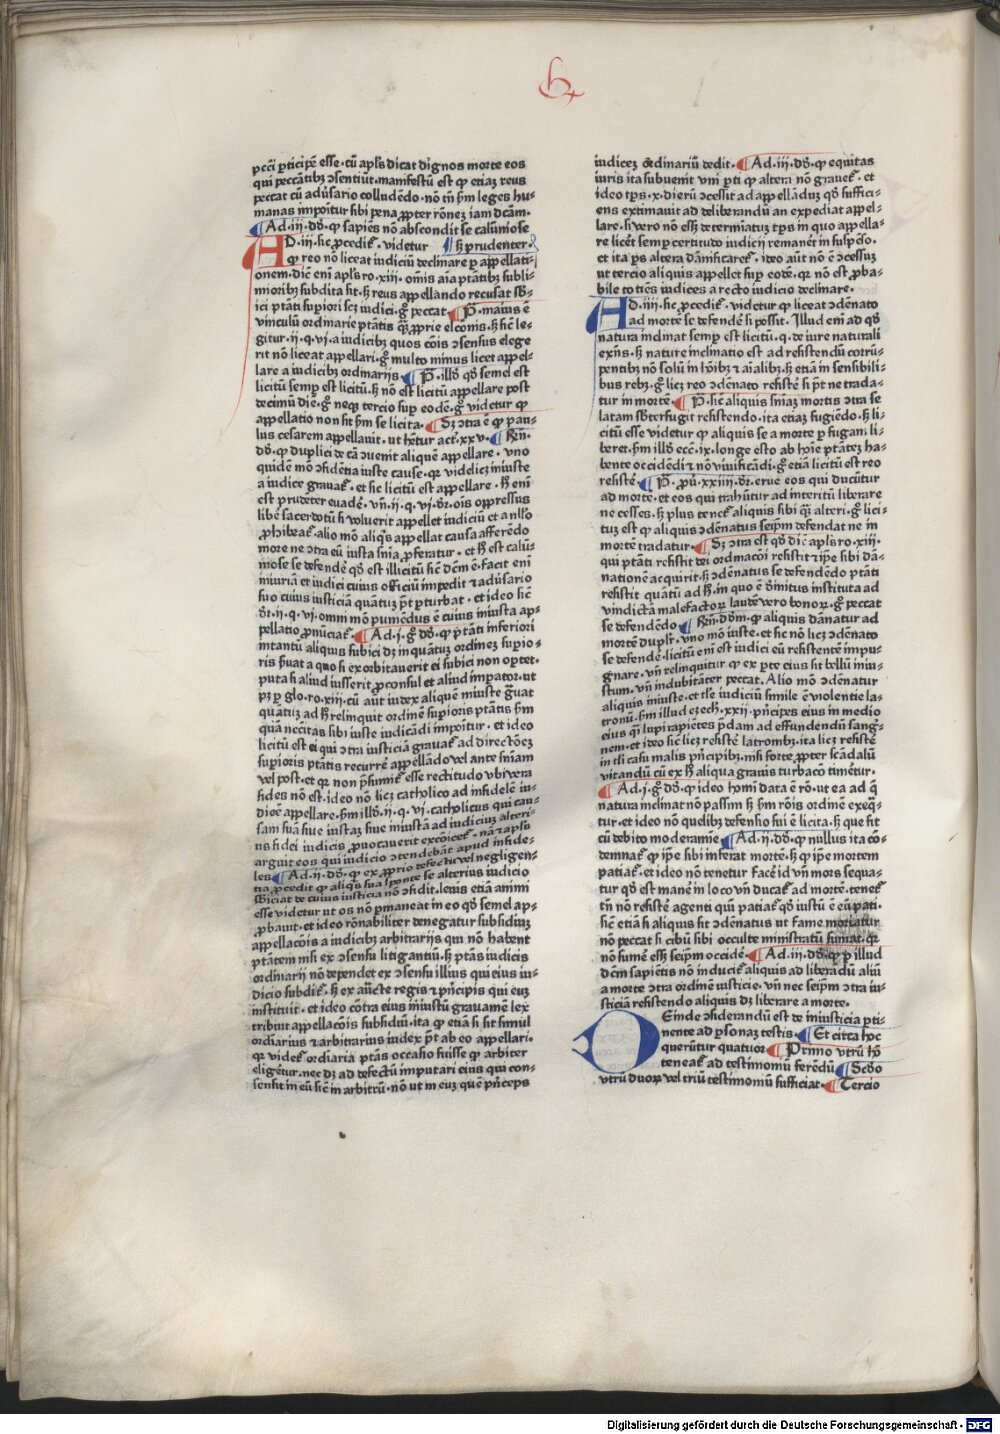 pccī ꝑticipē esse·cū apl's dicat dignos morte eos
qui peccātibꝫ ɔsentiūt·manifestū est ꝙ etiaꝫ reus
peccat cū adūsario colludēdo·nō tn̄ ẜm leges hu⸗
manas impōitur sibi pena ꝓpter rōneꝫ iam dc̄am·
¶ Ad·iij·dō·ꝙ sapiēs nō abscondit se calūniose
AD·iij·sic ꝓcedit᷒·videtur ¶ ẜ prudenter·
ꝙ reo nō liceat iudiciū declinare ꝑ appellati⸗
onem·dic̄ eni apl's ro·xiij·om̄is aia ptātibꝫ subli⸗
mioribꝫ subdita sit·ẜ reus appellando recusat sb̄⸗
ici ptāti suꝑiori scꝫ iudici·gͦ peccat ¶ P̄·maius ē
vinculū ordinarie ptātis qͣꝫ ꝓprie elc̄onis·ẜ sic̄ le⸗
gitur·ij·q·vj·a iudicibꝫ quos cōis ɔsensus elege
rit nō liceat appellari·gͦ multo minus licet appel⸗
lare a iudicibꝫ ordinarijs ¶ P̄·illd̄ qd̄ semel est
licitū semꝑ est licitū·ẜ nō est licitū appellare post
decimū diē·gͦ neqꝫ tercio suꝑ eodē·gͦ videtur ꝙ
appellatio non sit ẜm se licita· ¶ Sꝫ ɔtra ē ꝙ pau⸗
lus cesarem appellauit·ut hr̄tur act᷒·xxv· ¶ Rn̄·
dō·ꝙ duplici de cā ɔuenit aliquē appellare·vno
quidē mō ɔfidētia iuste cause·qꝛ videlicꝫ iniuste
a iudice grauat᷒·et sic licitū est appellare·ẜ eni
est prudēter euadē·vn̄·ij·q·vj·dr̄·oīs oppressus
libē sacerdotū si voluerit appellet iudiciū et a nllo
ꝓhibeat᷒·alio mō aliqͥs appellat causa afferēdo
more ne ɔtra eū iusta snīa ꝓferatur·et ẜ est calū⸗
niose se defendē qd̄ est illicitū sic̄ dcm̄ ē·facit eni
iniuriā et iudici cuius officiū impedit ⁊ adūsario
suo cuius iusticiā quātuꝫ pt̄ ꝑturbat·et ideo sic̄
dr̄·ij·q·vj·omni mō puniēdus ē cuius iniusta ap⸗
pellatio ꝓnūciat᷒· ¶ Ad·j·gͦ dō·ꝙ ptāti inferiori
intantū aliquis subici dꝫ inquātuꝫ ordineꝫ suꝑio⸗
ris ẜuat a quo si exorbitauerit ei subici non oꝑtet·
puta si aliud iusserit ꝓconsul et aliud impator·ut
pꝫ ꝑ glo·ro·xiij·cū aūt iudex aliquē iniuste gͣuat
quātuꝫ ad ẜ relinquit ordinē suꝑioris ptātis ẜm
quā neccītas sibi iuste iudicādi impōitur·et ideo
licitū est ei qui ɔtra iusticiā grauat᷒ ad directōeꝫ
suꝑioris ptātis recurrē appellādo vel ante snīam
vel post·et qꝛ non p̄sumit᷒ esse rectitudo vbi vera
fides nō est·ideo nō licꝫ catholico ad infidelē iu⸗
dicē appellare·ẜm illd̄·ij·q·vj·catholicus qui cau⸗
sam suā siue iustaꝫ siue iniustā ad iudiciuꝫ alteri⸗
us fidei iudicis ꝓuocauerit excōicet᷒·nā ⁊ apl's
arguit eos qui iudicio ɔtendebāt apud infide⸗
les ¶ Ad·ij·dō·ꝙ ex ꝓprio defectu vel negligen⸗
tia ꝓcedit ꝙ aliqͥs sua sponte se alterius iudicio
sb̄iciat de cuius iusticia nō ɔfidit·leuis etiā animi
esse videtur ut os nō ꝑmaneat in eo qd̄ semel ap⸗
ꝓbauit·et ideo rōnabiliter denegatur subsidiuꝫ
appellacōis a iudicibꝫ arbitrarijs qui nō habent
ptātem nisi ex ɔsensu litigantiū·ẜ ptās iudicis
ordinarij nō dependet ex ɔsensu illius qui eius iu⸗
dicio subdit᷒·ẜ ex auc̄te regis ⁊ pn̄cipis qui euꝫ
instituit·et ideo cōtra eius iniustū grauamē lex
tribuit appellacōis subsidiū·ita ꝙ etiā si sit simul
ordiarius ⁊ arbitrarius iudex pt̄ ab eo appellari·
qꝛ videt᷒ ordiaria ptās occasio fuisse ꝙ arbiter
eligētur·nec dꝫ ad defectū imputari eius qui con⸗
sensit in eū sic̄ in arbitrū·nō ut in euꝫ quē pn̄ceps
iudiceꝫ ordinariū dedit· ¶ Ad·iij·dō·ꝙ equitas
iuris ita subuenit vni ꝑti ꝙ altera nō grauet᷒·et
ideo tꝑs·x·dierū ɔcessit ad appellāduꝫ qd̄ suffici⸗
ens extimauit ad deliberandū an expediat appel⸗
lare·si vero nō esꝫ determiatuꝫ tꝑs in quo appella⸗
re licet᷒ semꝑ certitudo iudicij remanēt in suspēso·
et ita ꝑs altera dānificaret᷒·ideo aūt nō ē ɔcessuꝫ
ut tercio aliquis appellet suꝑ eodē·qꝛ nō est ꝓba⸗
bile tociēs iudices a recto iudicio declinare·
AD·iiij·sic ꝓcedit᷒·videtur ꝙ liceat ɔdēnato
ad morte se defendē si possit·Illud eni ad qd̄
natura inclinat semꝑ est licitū·q·de iure naturali
exn̄s·ẜ nature inclinatio est ad resistendū corrū⸗
pentibꝫ nō solū in hoībꝫ ⁊ aīalibꝫ·ẜ etiā in sensibili⸗
bus rebꝫ·gͦ licꝫ reo ɔdēnato resistē si pt̄ ne trada⸗
tur in mortē· ¶ P̄·sic̄ aliquis sniāꝫ mortis ɔtra se
latam sb̄terfugit resistendo·ita etiaꝫ fugiēdo·ẜ li⸗
citū esse videtur ꝙ aliquis se a morte ꝑ fugam li⸗
beret·ẜm illd̄ ecē·ix·longe esto ab hoīe ptāteꝫ ha⸗
bente occidēdi ⁊ nō viuificādi·gͦ etiā licitū est reo
resistē· ¶ P̄·ꝓū·xxiiij·dr̄·erue eos qui ducūtur
ad mortē·et eos qui trahūtur ad interitū liberare
ne cesses·ẜ plus tenet᷒ aliquis sibi qͣꝫ alteri·gͦ lici⸗
tuꝫ est ꝙ aliquis ɔdēnatus seiꝑm defendat ne in
mortē tradatur· ¶ Sꝫ ɔtra est qd̄ dic̄ apl's ro·xiij·
qui ptāti resistit dei ordinacōi resistit ⁊ iꝑe sibi dā⸗
nationē acquirit·ẜ ɔdēnatus se defendēdo ptāti
resistit quātū ad ẜ·in quo ē diuinitus instituta ad
vindictā malefactoꝝ laudē vero bonoꝝ·gͦ peccat
se defendēdo ¶ Rn̄·dōm·ꝙ aliquis dānatur ad
mortē duplr̄·vno mō iuste·et sic nō licꝫ ɔdēnato
se defendē·licitū eni est iudici eū resistentē impu⸗
gnare·vn̄ relinquitur ꝙ ex ꝑte eius sit bellū iniu⸗
stum·vn̄ indubitāter peccat·Alio mō ɔdēnatur
aliquis iniuste·et tle iudiciū simile ē violentie la⸗
tronū·ẜm illud ezech·xxij·pn̄cipes eius in medio
eius qͣi lupi rapiētes p̄dam ad effundendū sangͥ⸗
nem·et ideo sic̄ licꝫ resistē latronibꝫ·ita licꝫ resistē
in tli casu malis pn̄cipibꝫ·nisi forte ꝓpter scādalū
vitandū cū ex ẜ aliqua grauis turbacō timētur·
¶ Ad·j·gͦ dō·ꝙ ideo homī data ē rō·ut ea ad qͣ
natura inclinat nō passim ẜ ẜm rōis ordinē exeqͣ⸗
tur·et ideo nō quelibꝫ defensio sui ē licita·ẜ que sit
cū debito moderamīe ¶ Ad·ij·dō·ꝙ nullus ita cō⸗
demnat᷒ ꝙ iꝑe sibi inferat mortē·ẜ ꝙ iꝑe mortem
patiat᷒·et ideo nō tenetur facē id vn̄ mors sequa⸗
tur qd̄ est manē in loco vn̄ ducat᷒ ad mortē·tenet᷒
tn̄ nō resistē agenti qui patiat᷒ qd̄ iustū ē eū pati·
sic̄ etiā si aliquis sit ɔdēnatus ut fame moriatur
nō peccat si cibū sibi occulte ministratū sumat·qꝛ
nō sumē esꝫ seiꝑm occidē· ¶ Ad·iij·dō·ꝙ ꝑ illud
dcm̄ sapiētis nō inducit᷒ aliquis ad liberādū aliū
a morte ɔtra ordinē iusticie·vn̄ nec seiꝑm ɔtra iu⸗
sticiā resistendo aliquis dꝫ liberare a morte·
DEinde ɔsiderandū est de iniusticia ꝑti⸗
nente ad ꝑsonaꝫ testis· ¶ Et circa hoc
querūtur quatuor ¶ Primo vtrū hō
teneat᷒ ad testimoniū ferēdū ¶ Scd̄o
vtrū duoꝝ vel triū testimoniū sufficiat· ¶ Tercio
Digitalisierung gefördert durch die Deutsche Forschungsgemeinschaft · DFG